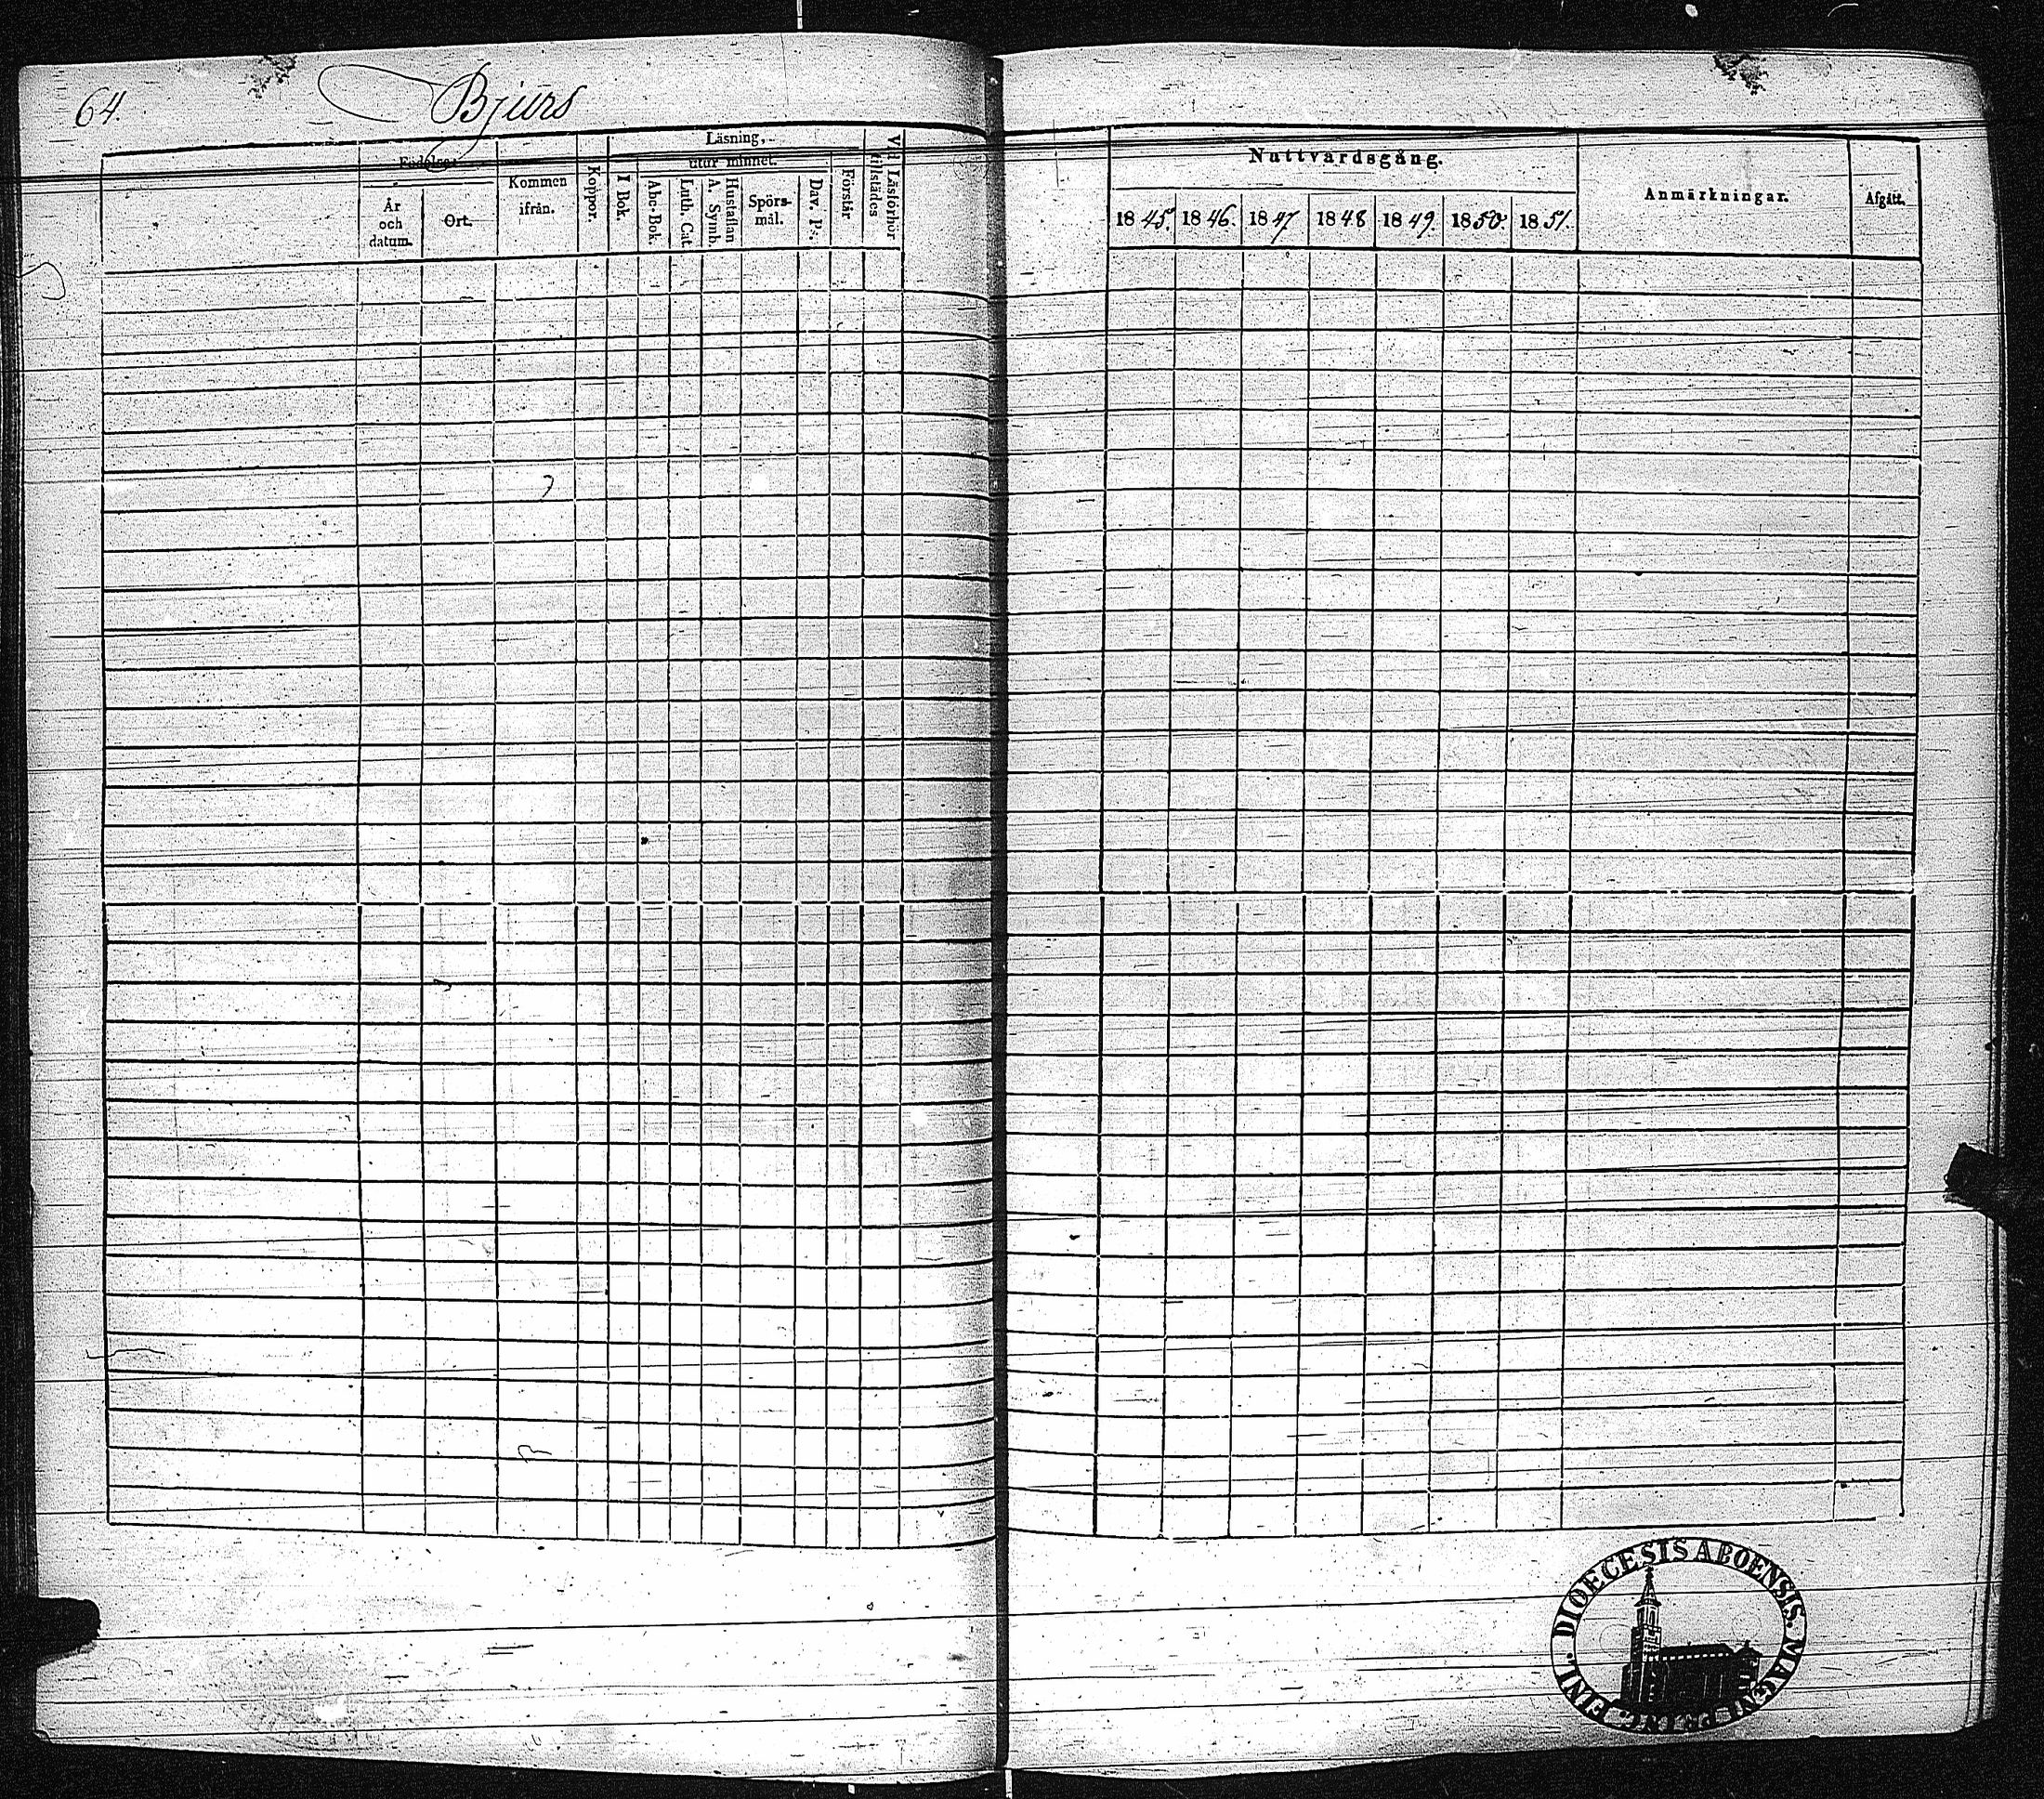 64.
Bjurs
Födelse:
År och datum.
Ort.
Kommen ifrån.
Koppor.
Läsning,
utur minnet.
I Bok.
Abc-Bok.
Luth. Cat.
Hustaflan A. Symb.
Spörsmål.
Dav. Ps.
Förstår
Vid Läsförhör tillstädes
Nattvardsgång.
1845. 1846. 1847. 1848 1849. 1850. 1851.
Anmärkningar.
Afgått.
DIOECESIS ABOENSIS.
FINL.